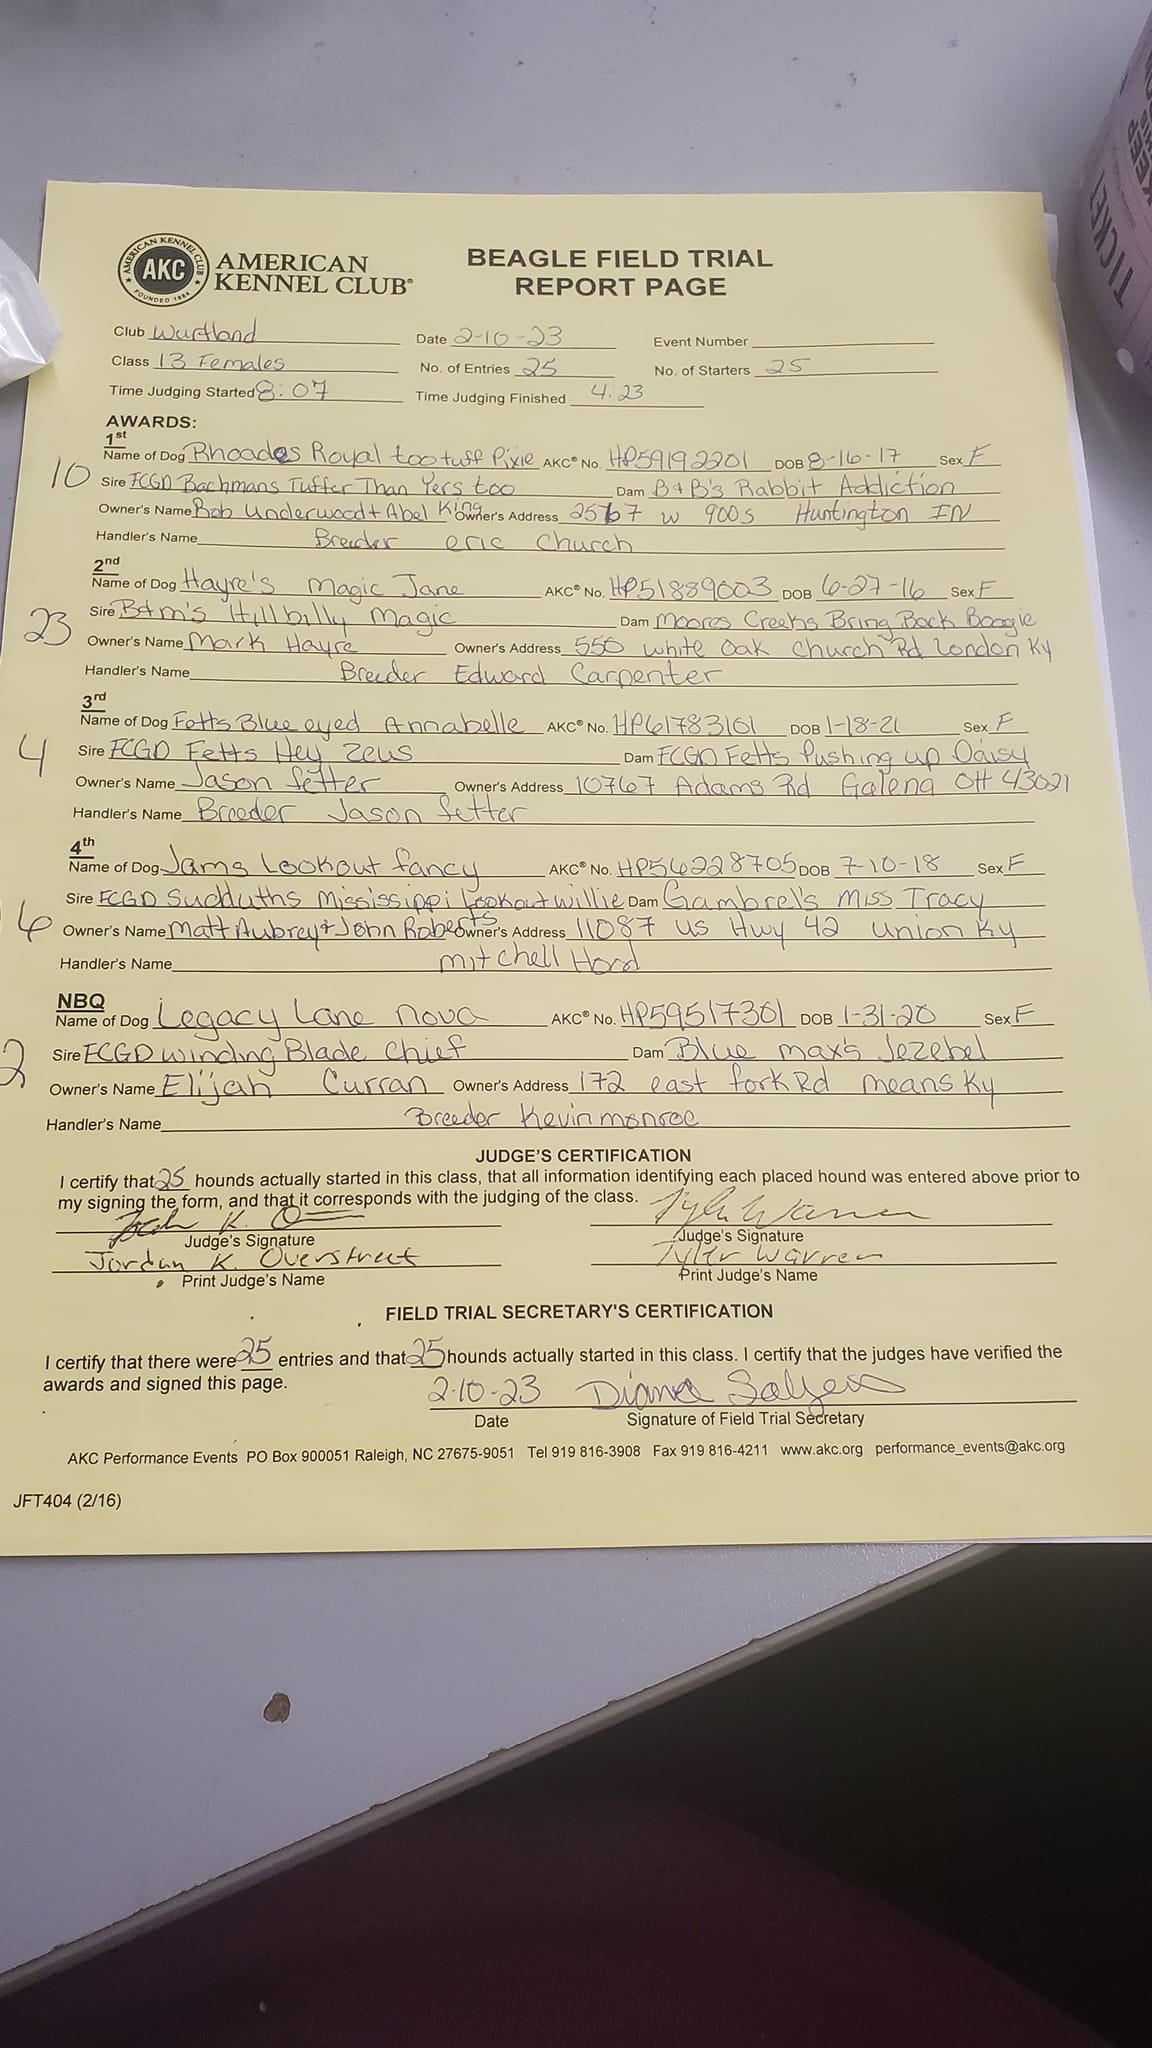 AMERICAN KENNEL CLUB
AKC
FOUNDED 1884
AMERICAN
KENNEL CLUB®
BEAGLE FIELD TRIAL
REPORT PAGE
Club Wurtland Date 2-10-23 Event Number
Class 13 Females No. of Entries 25 No. of Starters 25
Time Judging Started 8:07 Time Judging Finished 4:23
AWARDS:
1st
Name of Dog Rhoades Royal too tuff Pixie AKC® No. HP59192201 DOB 8-16-17 Sex F
10 Sire FCGD Bachmans Tuffer Than Yers too Dam B+B's Rabbit Addiction
Owner's Name Bob Underwood + Abel King Owner's Address 2567 W 900 S Huntington IN
Handler's Name Breeder eric Church
2nd
Name of Dog Hayre's Magic Jane AKC® No. HP51889003 DOB 6-27-16 Sex F
23 Sire B+m's Hillbilly Magic Dam Moores Creeks Bring Back Boogie
Owner's Name Mark Hayre Owner's Address 550 White Oak Church Rd London Ky
Handler's Name Breeder Edward Carpenter
3rd
Name of Dog Fetts Blue eyed Annabelle AKC® No. HP61783101 DOB 1-18-21 Sex F
4 Sire FCGD Fetts Hey Zeus Dam FCGD Fetts Pushing up Daisy
Owner's Name Jason fetter Owner's Address 10767 Adams Rd Galena OH 43021
Handler's Name Breeder Jason fetter
4th
Name of Dog Jams Lookout fancy AKC® No. HP56228705 DOB 7-10-18 Sex F
6 Sire FCGD Sudduths Mississippi Lookout willie Dam Gambrel's Miss Tracy
Owner's Name Matt Aubrey + John Roberts Owner's Address 11087 US Hwy 42 Union Ky
Handler's Name Mitchell Hood
NBQ
Name of Dog Legacy Lane Nova AKC® No. HP59517301 DOB 1-31-20 Sex F
2 Sire FCGD Winding Blade Chief Dam Blue max's Jezebel
Owner's Name Elijah Curran Owner's Address 172 east fork Rd Means Ky
Handler's Name Breeder Kevin monroe
JUDGE'S CERTIFICATION
I certify that 25 hounds actually started in this class, that all information identifying each placed hound was entered above prior to
my signing the form, and that it corresponds with the judging of the class.
Tyler Warren
Judge's Signature Judge's Signature
Jordan K. Overstreet Tyler Warren
Print Judge's Name Print Judge's Name
FIELD TRIAL SECRETARY'S CERTIFICATION
I certify that there were 25 entries and that 25 hounds actually started in this class. I certify that the judges have verified the
awards and signed this page.
2-10-23 Diana Salyers
Date Signature of Field Trial Secretary
AKC Performance Events PO Box 900051 Raleigh, NC 27675-9051 Tel 919 816-3908 Fax 919 816-4211 www.akc.org performance_events@akc.org
JFT404 (2/16)
TICKET
KEEP